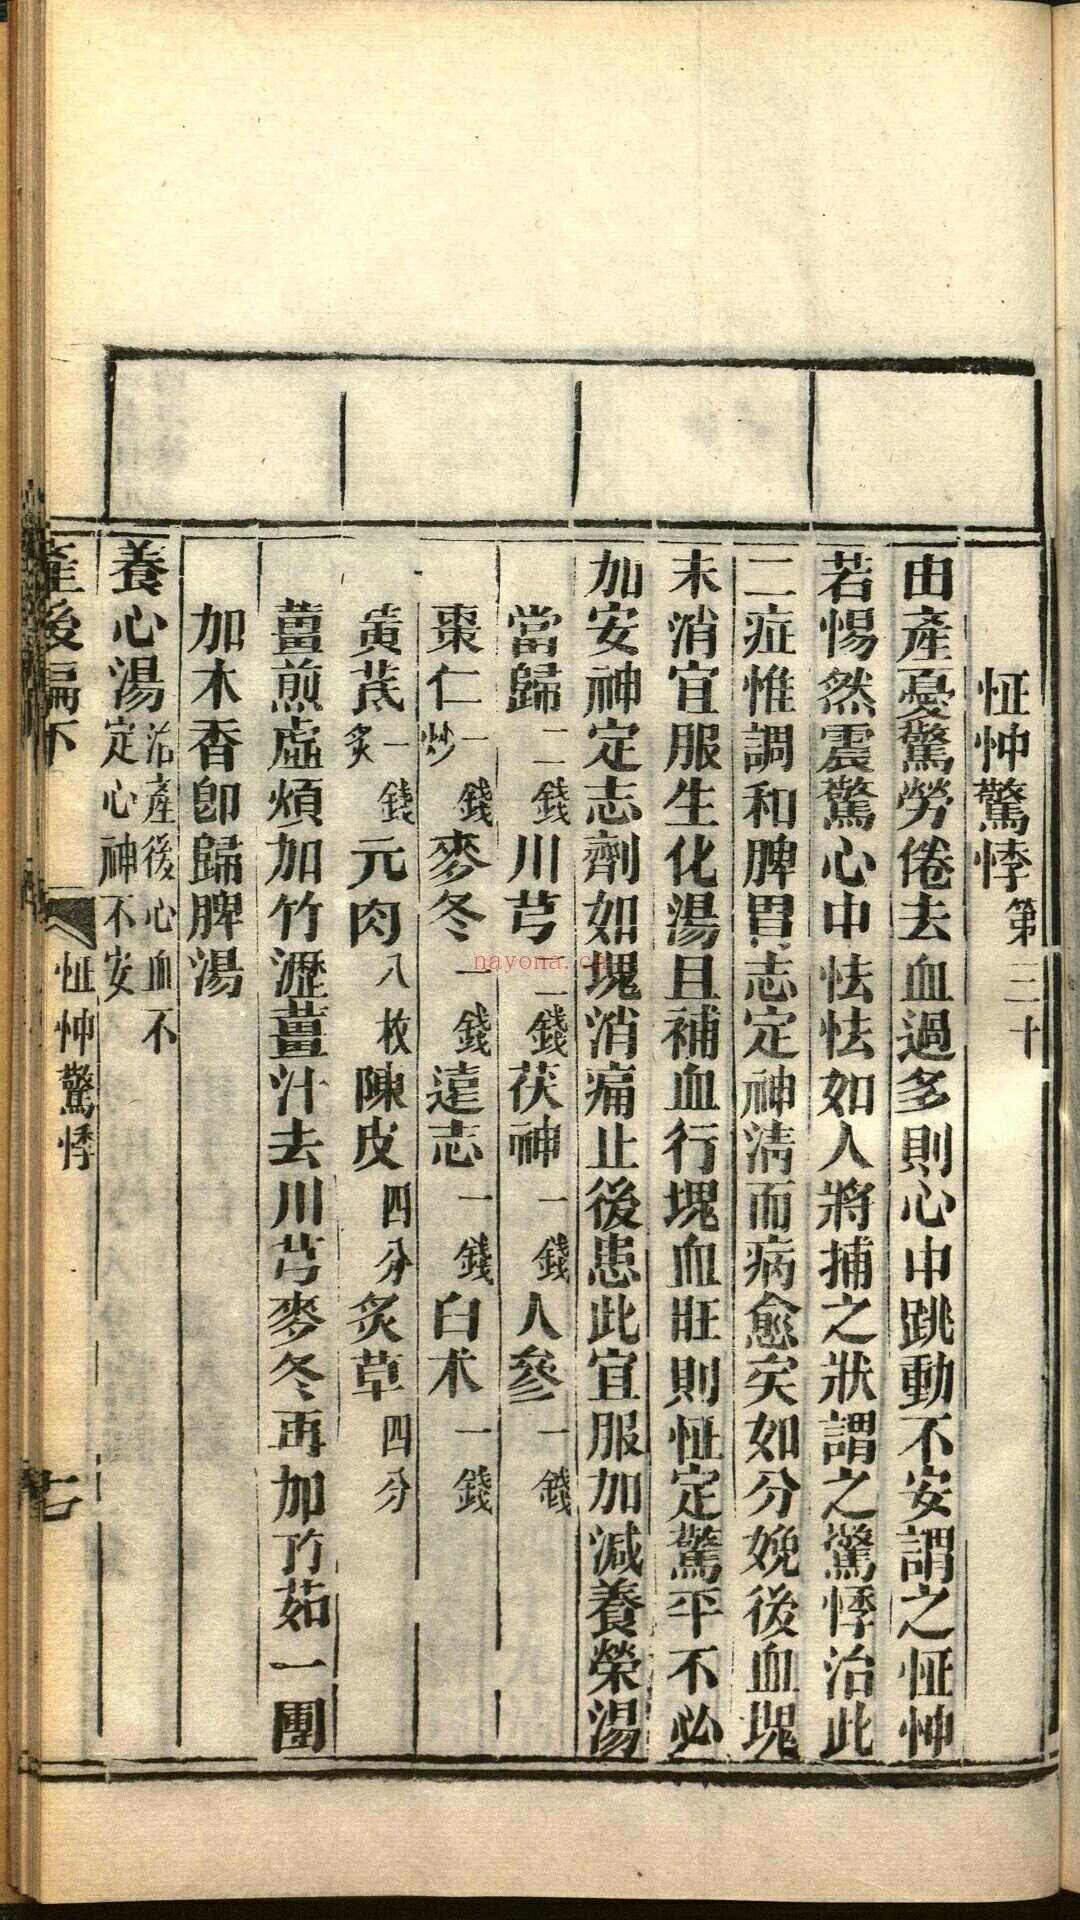 怔忡驚悸第三十
由產憂驚勞倦去血過多則心中跳動不安謂之怔忡
若惕然震驚心中怯怯如人將捕之狀謂之驚悸治此
二症惟調和脾胃志定神清而病愈矣如分娩後血塊
未消宜服生化湯且補血行塊血旺則怔定驚平不必
加安神定志劑如塊消痛止後患此宜服加減養榮湯
當歸二錢川芎二錢茯神一錢人參一錢
棗仁炒一錢麥冬一錢遠志一錢白朮一錢
黃芪炙一錢元肉八枚陳皮四分炙草四分
薑煎虛煩加竹瀝薑汁去川芎麥冬再加竹茹一團
加木香卽歸脾湯
養心湯治產後心血不定心神不安
產後編下
怔忡驚悸
七
nayona.cn